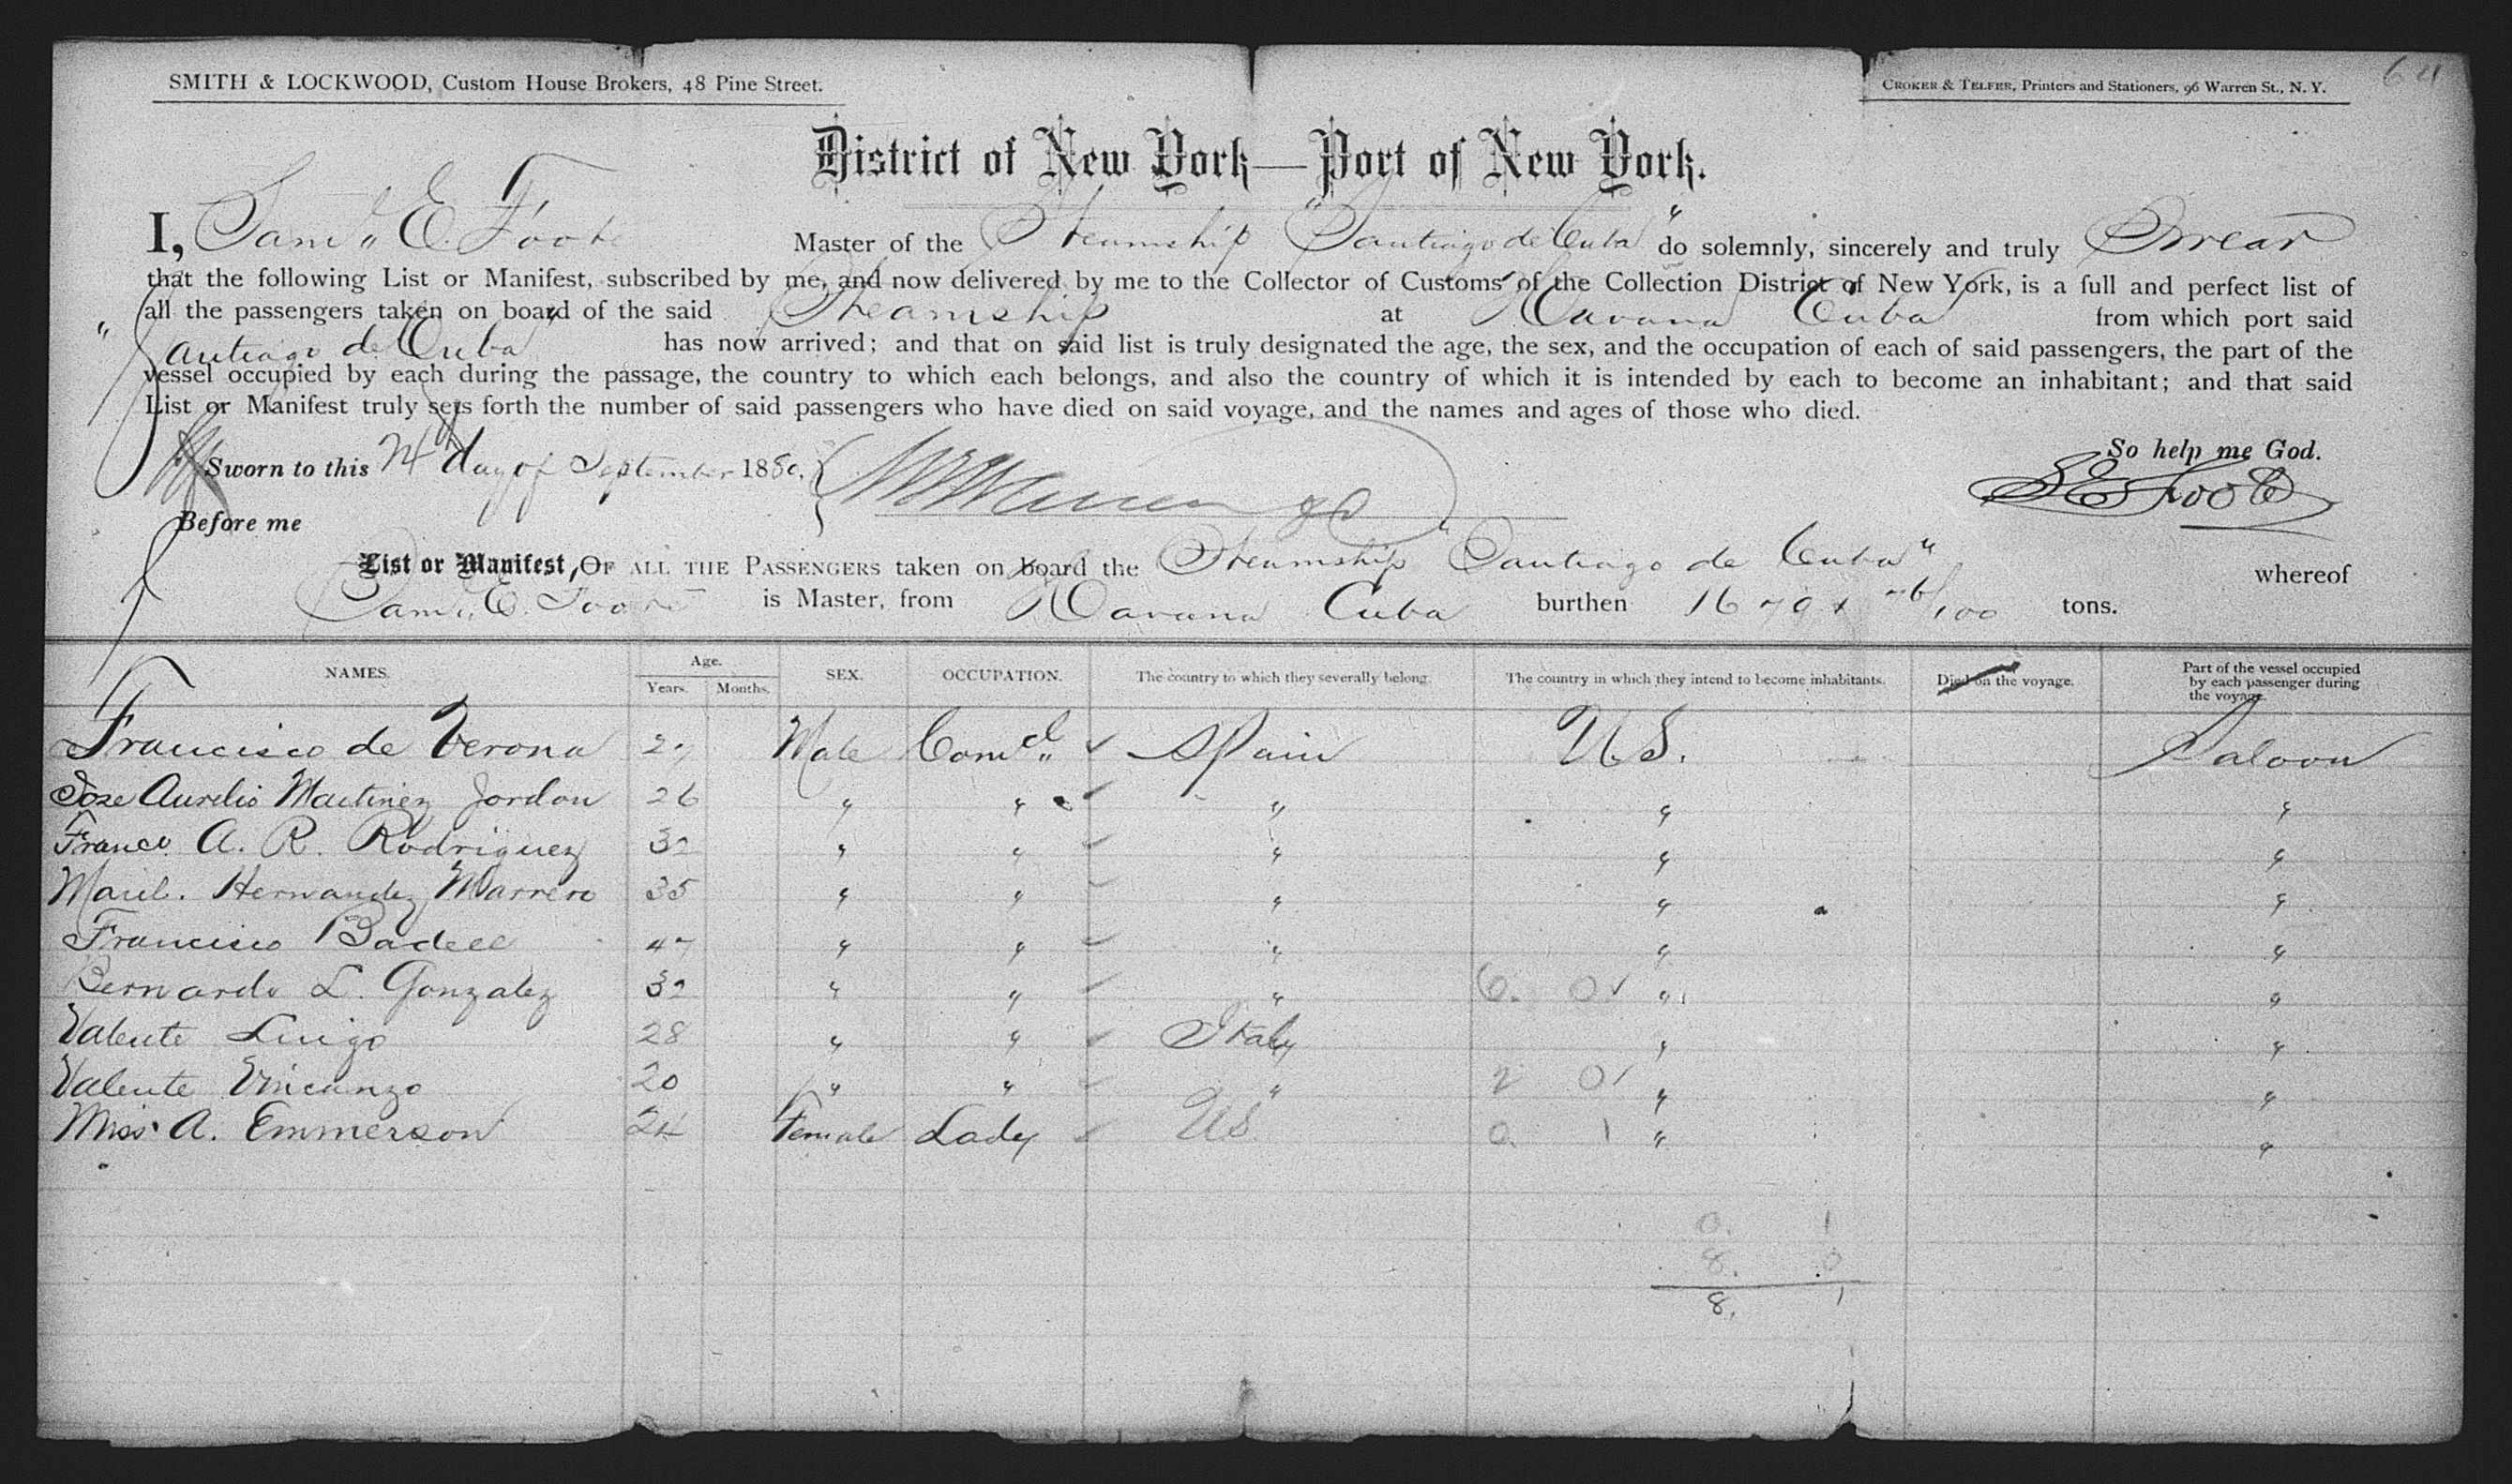 SMITH & LOCKWOOD, Custom House Brokers, 48 Pine Street.
CROKER & TELFER, Printers and Stationers, 96 Warren St., N. Y.
District of New York—Port of New York.
I, Saml. E. Foote Master of the Steamship "Santiago de Cuba" do solemnly, sincerely and truly Swear
that the following List or Manifest, subscribed by me, and now delivered by me to the Collector of Customs of the Collection District of New York, is a full and perfect list of
all the passengers taken on board of the said Steamship at Havana Cuba from which port said
"Santiago de Cuba" has now arrived; and that on said list is truly designated the age, the sex, and the occupation of each of said passengers, the part of the
vessel occupied by each during the passage, the country to which each belongs, and also the country of which it is intended by each to become an inhabitant; and that said
List or Manifest truly sets forth the number of said passengers who have died on said voyage, and the names and ages of those who died.
So help me God.
Sworn to this 24th day of September 1880,
S E Foote
Before me
List or Manifest, OF ALL THE PASSENGERS taken on board the Steamship "Santiago de Cuba" whereof
Saml. E. Foote is Master, from Havana Cuba burthen 1679 & 76/100 tons.
NAMES. Age. Years. Months. SEX. OCCUPATION. The country to which they severally belong. The country in which they intend to become inhabitants. Died on the voyage. Part of the vessel occupied by each passenger during the voyage.
Francisco de Verona 27 Male Comcl. ✓ Spain U S. Saloon
Jose Aurelio Martinez Jordon 26 " " ✓ " " "
Franco. A. R. Rodriguez 32 " " ✓ " " "
Hernandez Marrero 35 " " ✓ " " "
Francisco Badell 47 " " ✓ " " "
Bernardo L. Gonzalez 32 " " ✓ " 6. 0 ✓ " "
Valente Luigo 28 " " ✓ Italy " "
Valente Vincanzo 20 " " ✓ " 2 0 ✓ " "
Miss A. Emmerson 24 Female Lady ✓ US 0 1 " "
0. 1
8. 0
8. 1